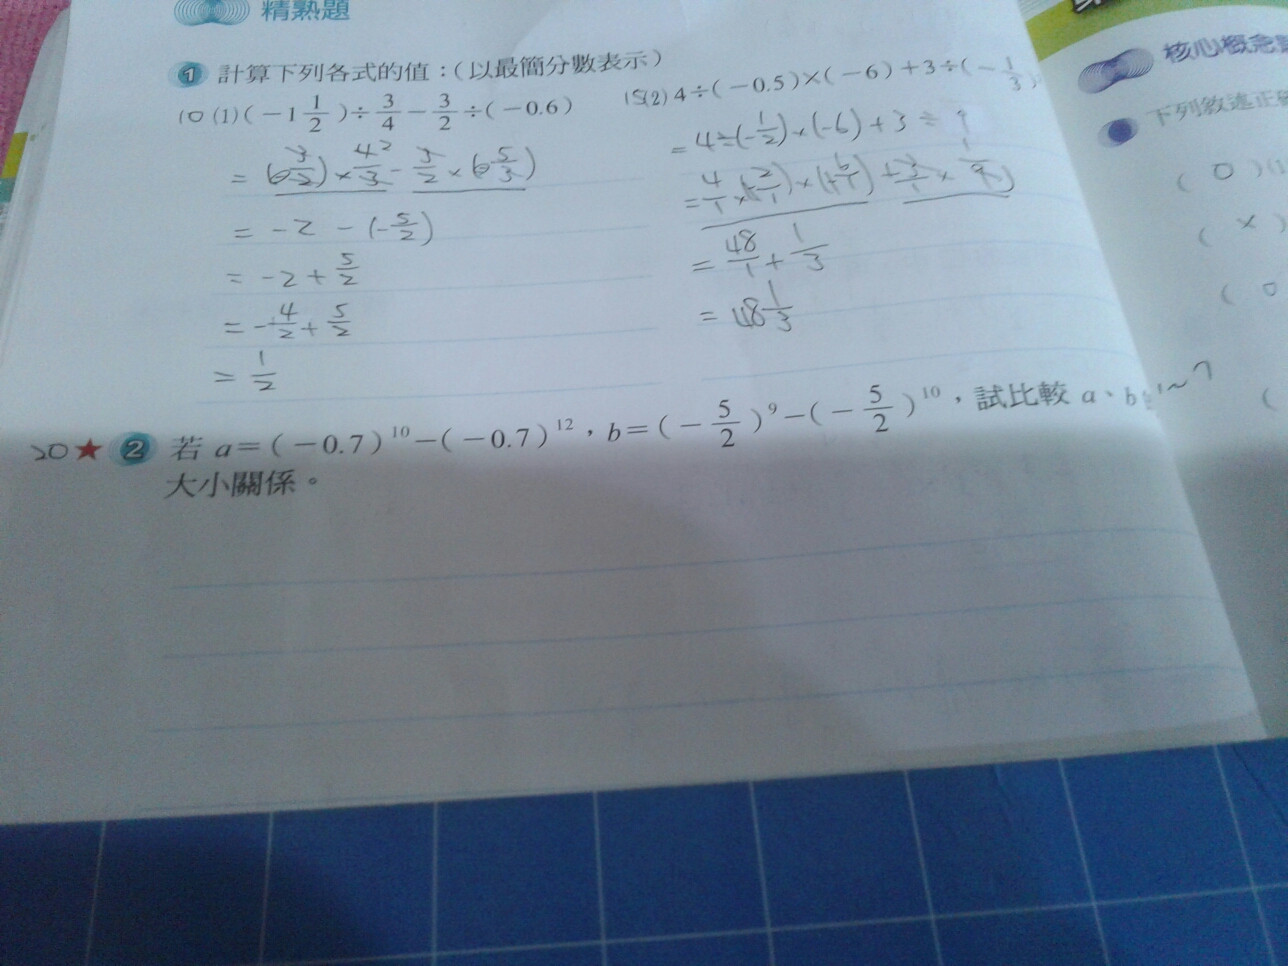 精熟題
1 計算下列各式的值：(以最簡分數表示)
10 (1) (−1 1/2)÷3/4−3/2÷(−0.6)
= (−3/2)×4/3−3/2×(−5/3)
= −2 − (−5/2)
= −2 + 5/2
= −4/2 + 5/2
= 1/2
15 (2) 4÷(−0.5)×(−6)+3÷(−1/3)
= 4÷(−1/2)×(−6)+3÷
= 48/1 + 1/3
= 48 1/3
20 ★ 2 若 a=(−0.7)^10−(−0.7)^12，b=(−5/2)^9−(−5/2)^10，試比較 a、b
大小關係。
核心概念
下列敘述正確
( ○ )
( × )
( ○
(